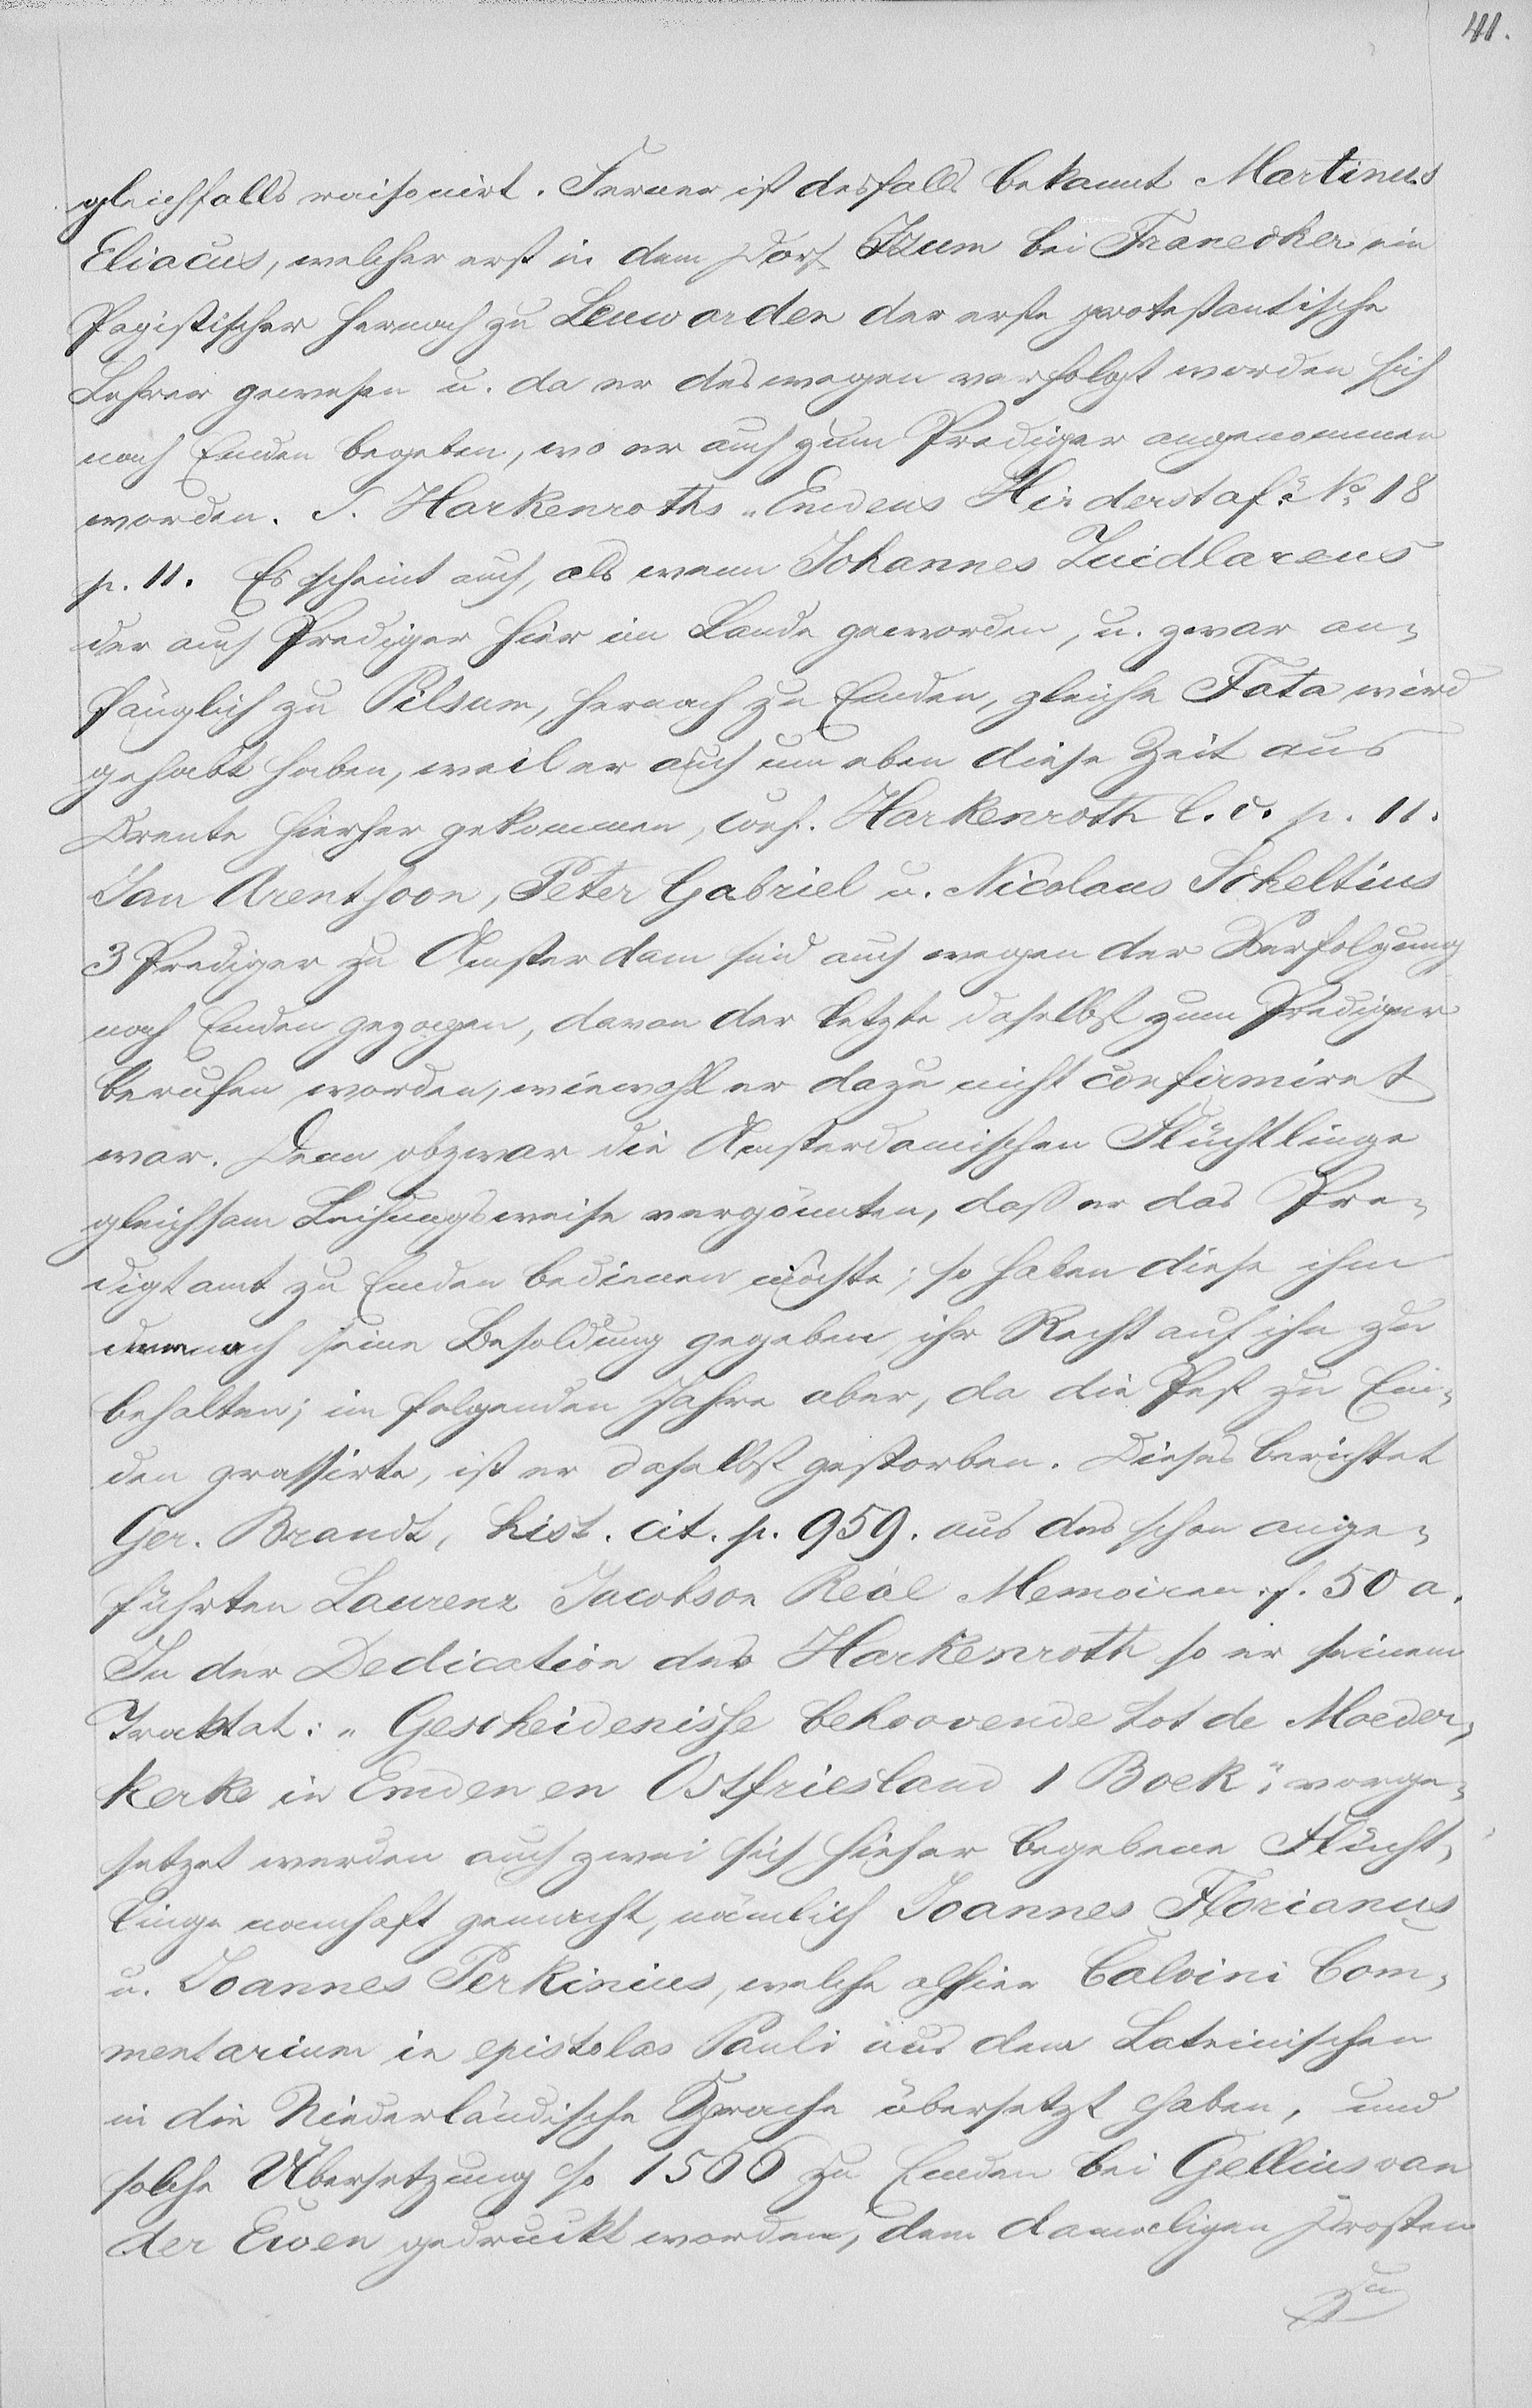 41.
gleichfalls raisonirt. Ferner ist desfalls bekannt Martinus
Eliacus, welcher erst in dem Dorf Tzum bei Franecker ein
Papistischer hernach zu Leuwarden der erste protestantische
Lehrer gewesen u. da er deswegen verfolgt worden sich
nach Emden begeben, wo er auch zum Prediger angenommen
worden. S. Harkenroths „Emdens Hirderstaf“ No 18
p. 11. Es scheint auch, als wenn Johannes Zuidlareus
der auch Prediger hier im Lande geworden, u. zwar an-
fänglich zu Pilsum, hernach zu Emden, gleiche Fata wird
gehabt haben, weil er auch um eben diese Zeit aus
Drente hierher gekommen, conf. Harkenroth l. c. p. 11.
Jan Arentsoon, Peter Gabriel u. Nicolaus Scheltius
3 Prediger zu Amsterdam sind auch wegen der Verfolgung
nach Emden gezogen, davon der letzte daselbst zum Prediger
berufen worden, wiewohl er dazu nicht confirmiret
war. Denn obzwar die Amsterdamischen Flüchtlinge
gleichsam Leihungsweise vergönnten, daß er das Pre-
digtamt zu Emden bedienen möchte; so haben diese ihm
dennoch seine Besoldung gegeben, ihr Recht auf ihn zu
behalten; im folgenden Jahre aber, da die Pest zu Em-
den grassirte, ist er daselbst gestorben. Dieses berichtet
Ger. Brandt, hist. cit. p. 959. aus des schon ange-
führten Laurenz Jacobson Reäl Memoiren f. 50 a.
In der Dedication des Harkenroth so er seinem
Traktat: „Gescheidenisse behoovende tot de Moeder-
kerke in Emden en Ostfriesland 1 Boek“, vorge-
setzet werden auch zwei sich hieher begebene Flücht-
linge namhaft gemacht, nämlich Joannes Florianus
u. Joannes Perkinius, welche alhier Calvini Com-
mentarium in epistolas Pauli aus dem Lateinischen
in die Niederländische Sprache übersetzt haben, und
solche Übersetzung so 1566 zu Emden bei Gellius van
der Ewen gedruckt worden, dem damaligen Drosten
zu